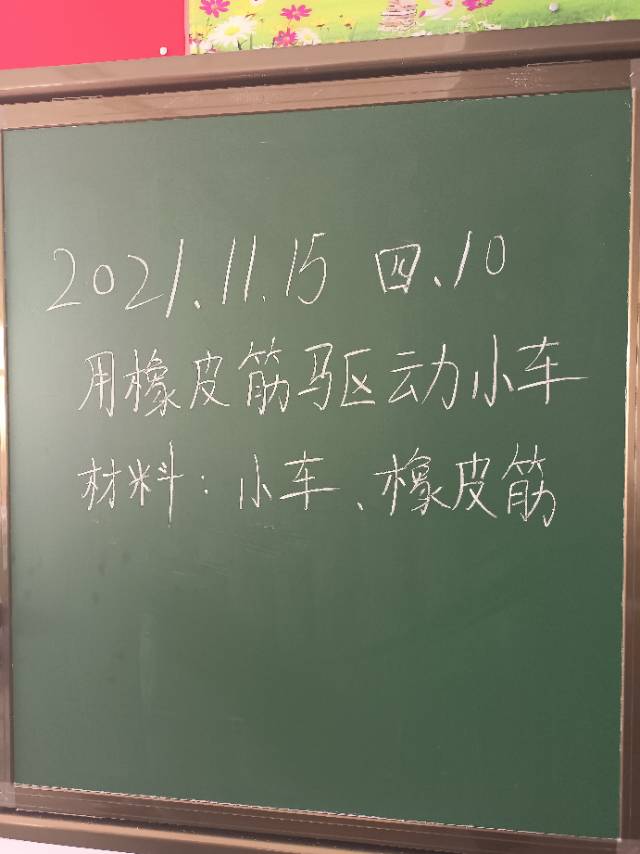 2021.11.15 四、10
用橡皮筋驱动小车
材料：小车、橡皮筋